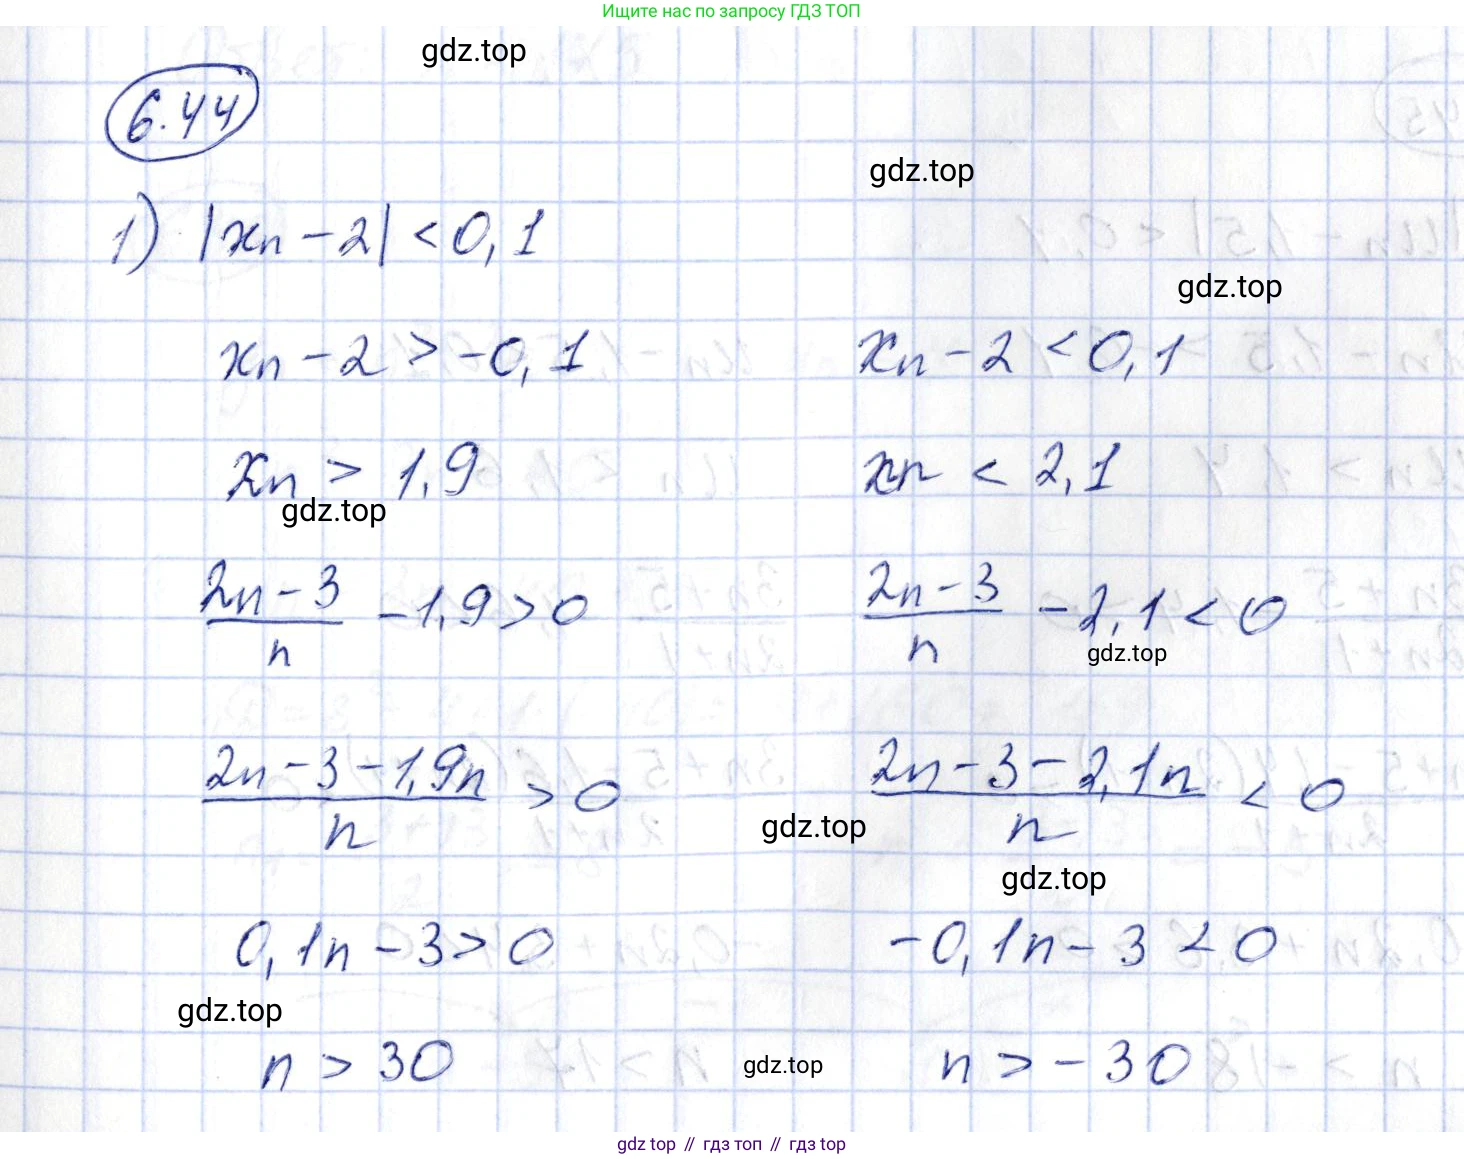 Ищите нас по запросу ГДЗ ТОП
gdz.top
6.44
gdz.top
1) |xn - 2| < 0,1
gdz.top
xn - 2 > -0,1
xn - 2 < 0,1
xn > 1,9
xn < 2,1
gdz.top
2n - 3 / n - 1,9 > 0
2n - 3 / n - 2,1 < 0
gdz.top
2n - 3 - 1,9n / n > 0
2n - 3 - 2,1n / n < 0
gdz.top
gdz.top
0,1n - 3 > 0
-0,1n - 3 < 0
gdz.top
n > 30
gdz.top
n > -30
gdz top // гдз топ // gdz top